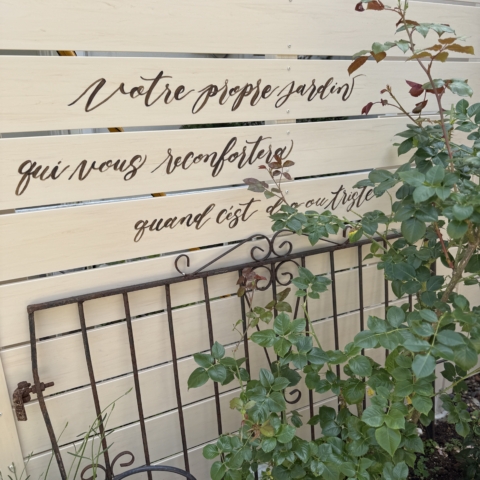 Votre propre jardin
qui vous reconfortera
quand c'est d ou triste